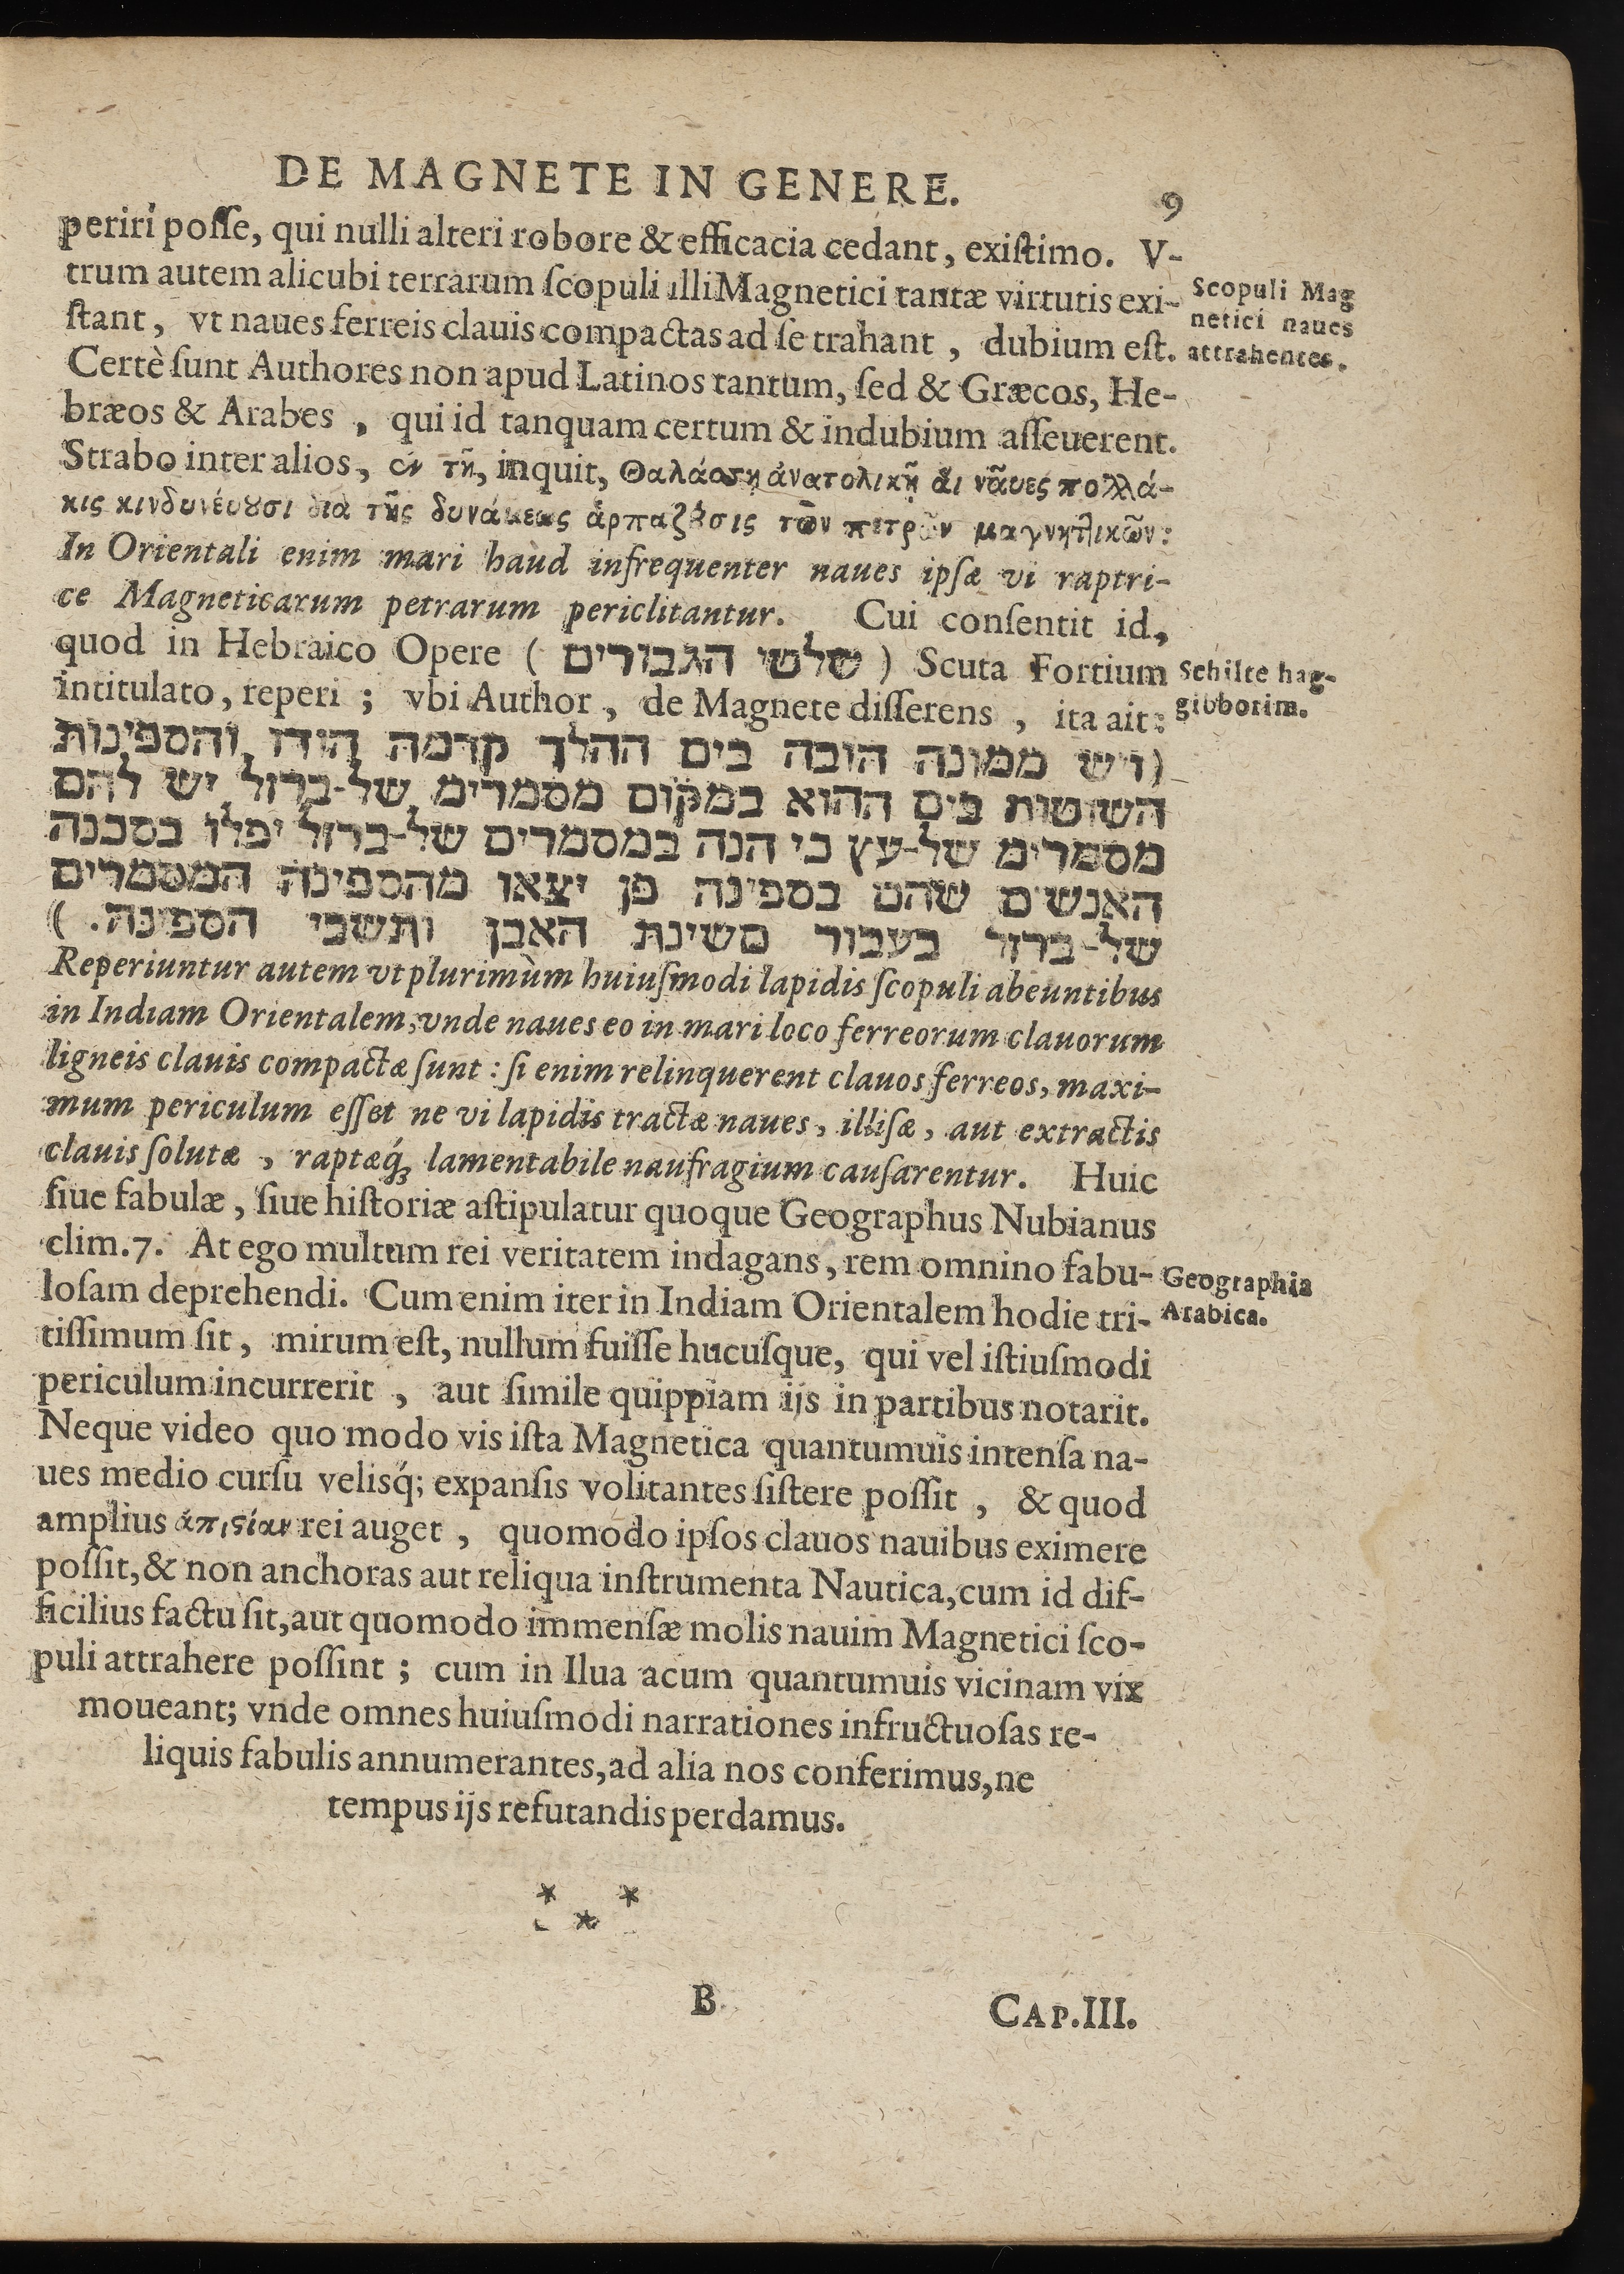 DE MAGNETE IN GENERE. 9
periri posse, qui nulli alteri robore & efficacia cedant, existimo. V-
trum autem alicubi terrarum scopuli illi Magnetici tantæ virtutis exi-
stant, vt naues ferreis clauis compactas ad se trahant, dubium est.
Scopuli Mag
netici naues
attrahentes.
Certè sunt Authores non apud Latinos tantum, sed & Græcos, He-
bræos & Arabes, qui id tanquam certum & indubium asseuerent.
Strabo inter alios, ἐν τῇ, inquit, Θαλάσσῃ ἀνατολικῇ ἁι νᾶυες πολλά-
κις κινδυνέυουσι δια τῆς δυνάμεως ἁρπαζούσις τῶν πετρῶν μαγνητικῶν:
In Orientali enim mari haud infrequenter naues ipsæ vi raptri-
ce Magneticarum petrarum periclitantur. Cui consentit id,
quod in Hebraico Opere ( שלטי הגבורים ) Scuta Fortium
intitulato, reperi; vbi Author, de Magnete disserens, ita ait:
Schilte hag-
gibborim.
(ויש ממונה הובה בים ההלך קדמה הודו והספינות
השוטות בים ההוא במקום מסמרים של-ברזל יש להם
מסמרים של-עץ כי הנה במסמרים של-ברזל יפלו בסכנה
האנשים שהם בספינה פן יצאו מהספינה המסמרים
של-ברזל בעבור משינת האבן ותשבי הספינה. )
Reperiuntur autem vt plurimùm huiusmodi lapidis scopuli abeuntibus
in Indiam Orientalem, vnde naues eo in mari loco ferreorum clauorum
ligneis clauis compactæ sunt: si enim relinquerent clauos ferreos, maxi-
mum periculum esset ne vi lapidis tractæ naues, illisæ, aut extractis
clauis solutæ, raptæq́; lamentabile naufragium causarentur. Huic
siue fabulæ, siue historiæ astipulatur quoque Geographus Nubianus
clim.7. At ego multum rei veritatem indagans, rem omnino fabu-
losam deprehendi. Cum enim iter in Indiam Orientalem hodie tri-
Geographia
Arabica.
tissimum sit, mirum est, nullum fuisse hucusque, qui vel istiusmodi
periculum incurrerit, aut simile quippiam ijs in partibus notarit.
Neque video quo modo vis ista Magnetica quantumuis intensa na-
ues medio cursu velisq́; expansis volitantes sistere possit, & quod
amplius ἀπιςίαν rei auget, quomodo ipsos clauos nauibus eximere
possit, & non anchoras aut reliqua instrumenta Nautica, cum id dif-
ficilius factu sit, aut quomodo immensæ molis nauim Magnetici sco-
puli attrahere possint; cum in Ilua acum quantumuis vicinam vix
moueant; vnde omnes huiusmodi narrationes infructuosas re-
liquis fabulis annumerantes, ad alia nos conferimus, ne
tempus ijs refutandis perdamus.
* *
*
B CAP.III.